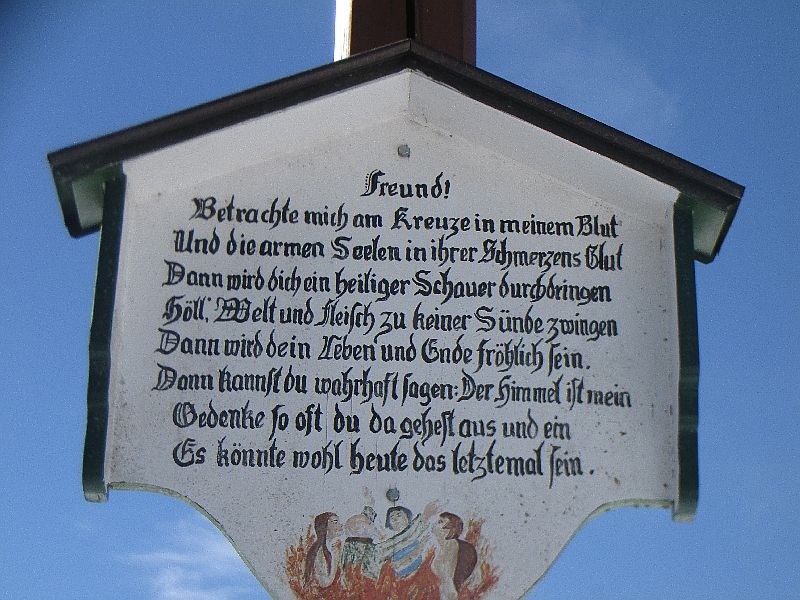 Freund!
Betrachte mich am Kreuze in meinem Blut
Und die armen Seelen in ihrer Schmerzens Glut
Dann wird dich ein heiliger Schauer durchdringen
Höll', Welt und Fleisch zu keiner Sünde zwingen
Dann wird dein Leben und Ende fröhlich sein.
Dann kannst du wahrhaft sagen: Der Himmel ist mein
Gedenke so oft du da gehest aus und ein
Es könnte wohl heute das letztemal sein.